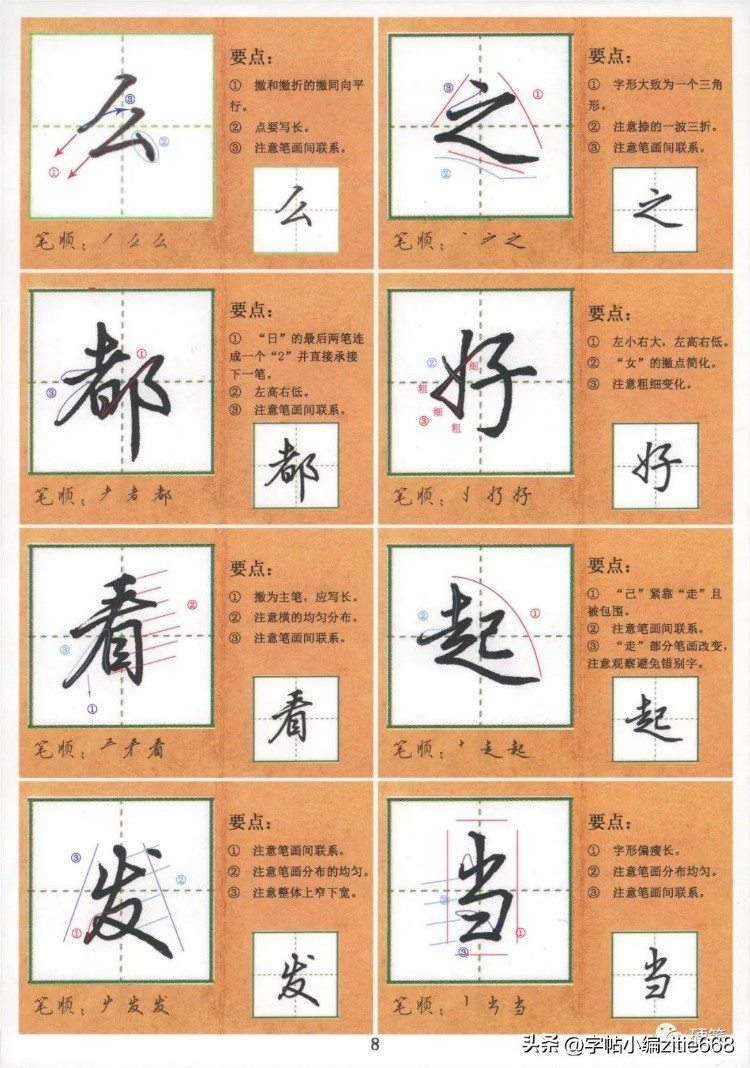 么
要点：
① 撇和撇折的撇同向平
行。
② 点要写长。
③ 注意笔画间联系。
①
②
③
么
笔顺：丿 么 么
之
要点：
① 字形大致为一个三角
形。
② 注意捺的一波三折。
③ 注意笔画间联系。
①
②
③
之
笔顺：丶 之
都
要点：
① “日”的最后两笔连
成一个“2”并直接承接
下一笔。
② 左高右低。
③ 注意笔画间联系。
①
③
都
笔顺：耂 者 都
好
要点：
① 左小右大，左高右低。
② “女”的撇点简化。
③ 注意粗细变化。
②
细
粗
细
③
粗
好
笔顺：好 好
看
要点：
① 撇为主笔，应写长。
② 注意横的均匀分布。
③ 注意笔画间联系。
②
③
①
看
笔顺：三 看 看
起
要点：
① “己”紧靠“走”且
被包围。
② 注意笔画间联系。
③ “走”部分笔画改变，
注意观察避免错别字。
①
②
起
笔顺：十 走 起
发
要点：
① 注意笔画间联系。
② 注意笔画分布的均匀。
③ 注意整体上窄下宽。
③
②
①
发
笔顺：发 发
当
要点：
① 字形偏瘦长。
② 注意笔画分布均匀。
③ 注意笔画间联系。
②
①
③
当
笔顺：丨 当 当
8
硬笔
头条 @字帖小编zitie668